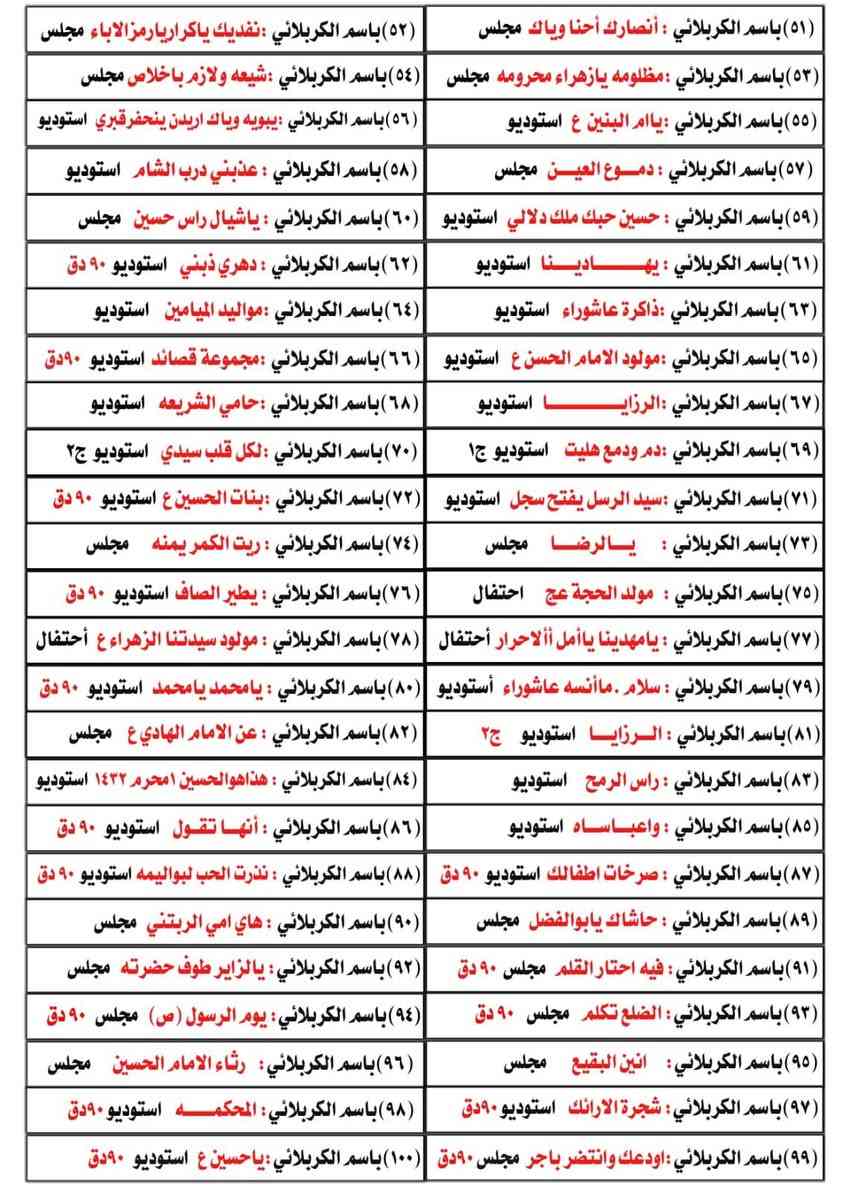 (٥١)باسم الكربلائي : أنصارك أحنا وياك مجلس
(٥٢)باسم الكربلائي :نفديك ياكراريارمزالاباء مجلس
(٥٣)باسم الكربلائي :مظلومه يازهراء محرومه مجلس
(٥٤)باسم الكربلائي :شيعه ولازم باخلاص مجلس
(٥٥)باسم الكربلائي :ياام البنين ع استوديو
(٥٦)باسم الكربلائي :يبويه وياك اريدن ينحفرقبري استوديو
(٥٧)باسم الكربلائي : دمـوع العيـن مجلس
(٥٨)باسم الكربلائي : عذبني درب الشام استوديو
(٥٩)باسم الكربلائي : حسين حبك ملك دلالي استوديو
(٦٠)باسم الكربلائي : ياشيال راس حسين مجلس
(٦١)باسم الكربلائي : يهــــاديـــنا استوديو
(٦٢)باسم الكربلائي : دهري ذبني استوديو ٩٠ دق
(٦٣)باسم الكربلائي :ذاكرة عاشوراء استوديو
(٦٤)باسم الكربلائي :مواليد الميامين استوديو
(٦٥)باسم الكربلائي :مولود الامام الحسن ع استوديو
(٦٦)باسم الكربلائي :مجموعة قصائد استوديو ٩٠دق
(٦٧)باسم الكربلائي :الرزايــــــــا استوديو
(٦٨)باسم الكربلائي :حامي الشريعه استوديو
(٦٩)باسم الكربلائي :دم ودمع هليت استوديو ج١
(٧٠)باسم الكربلائي :لكل قلب سيدي استوديو ج٢
(٧١)باسم الكربلائي :سيد الرسل يفتح سجل استوديو
(٧٢)باسم الكربلائي :بنات الحسين ع استوديو ٩٠ دق
(٧٣)باسم الكربلائي : يــا لرضــا مجلس
(٧٤)باسم الكربلائي : ريت الكمر يمنه مجلس
(٧٥)باسم الكربلائي : مولد الحجة عج احتفال
(٧٦)باسم الكربلائي : يطير الصاف استوديو ٩٠ دق
(٧٧)باسم الكربلائي : يامهدينا ياأمل أألاحرار أحتفال
(٧٨)باسم الكربلائي : مولود سيدتنا الزهراء ع أحتفال
(٧٩)باسم الكربلائي : سلام .ماأنسه عاشوراء أستوديو
(٨٠)باسم الكربلائي : يامحمد يامحمد استوديو ٩٠ دق
(٨١)باسم الكربلائي : الــرزايــا استوديو ج٢
(٨٢)باسم الكربلائي : عن الامام الهادي ع مجلس
(٨٣)باسم الكربلائي : راس الرمح استوديو
(٨٤)باسم الكربلائي : هذاهوالحسين ١محرم ١٤٣٢ استوديو
(٨٥)باسم الكربلائي : واعبـاسـاه استوديو
(٨٦)باسم الكربلائي : أنهـا تـقـول استوديو ٩٠ دق
(٨٧)باسم الكربلائي : صرخات اطفالك استوديو ٩٠ دق
(٨٨)باسم الكربلائي : نذرت الحب لبواليمه استوديو ٩٠ دق
(٨٩)باسم الكربلائي : حاشاك يابوالفضل مجلس
(٩٠)باسم الكربلائي : هاي امي الربتني مجلس
(٩١)باسم الكربلائي : فيه احتار القلم مجلس ٩٠ دق
(٩٢)باسم الكربلائي : يالزاير طوف حضرته مجلس
(٩٣)باسم الكربلائي : الضلع تكلم مجلس ٩٠ دق
(٩٤)باسم الكربلائي : يوم الرسول (ص) مجلس ٩٠ دق
(٩٥)باسم الكربلائي : انين البقيع مجلس
(٩٦)باسم الكربلائي : رثاء الامام الحسين مجلس
(٩٧)باسم الكربلائي : شجرة الارائك استوديو ٩٠دق
(٩٨)باسم الكربلائي : المحكمــــه استوديو ٩٠دق
(٩٩)باسم الكربلائي :اودعك وانتضر باجر مجلس ٩٠دق
(١٠٠)باسم الكربلائي :ياحسين ع استوديو ٩٠دق